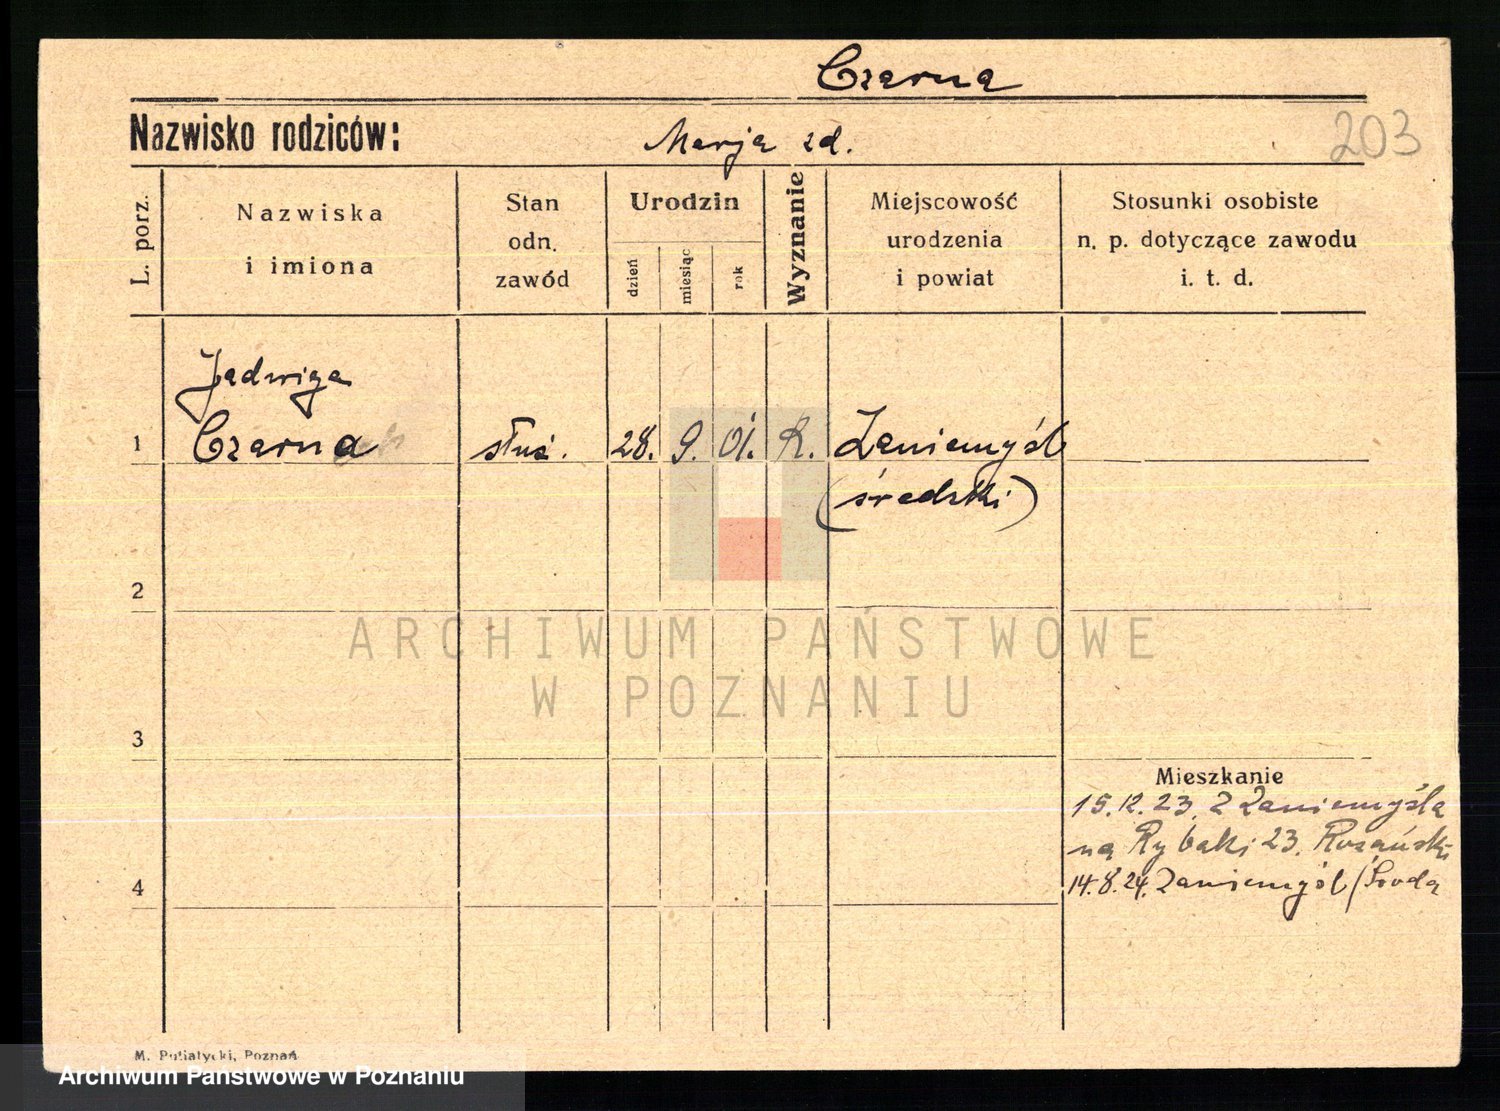 Czarna
Nazwisko rodziców:
Marja zd.
203
L. porz.
Nazwiska
i imiona
Stan
odn.
zawód
Urodzin
dzień
miesiąc
rok
Wyznanie
Miejscowość
urodzenia
i powiat
Stosunki osobiste
n. p. dotyczące zawodu
i. t. d.
Jadwiga
1 Czarna służ. 28. 9. 01. R. Zaniemyśl
(średzki)
2
ARCHIWUM PAŃSTWOWE
W POZNANIU
3
Mieszkanie
15.12.23. Z Zaniemyśla
na Rybaki 23. Rozański
4
14.8.24. Zaniemyśl / Środa
M. Putiatycki, Poznań
Archiwum Państwowe w Poznaniu